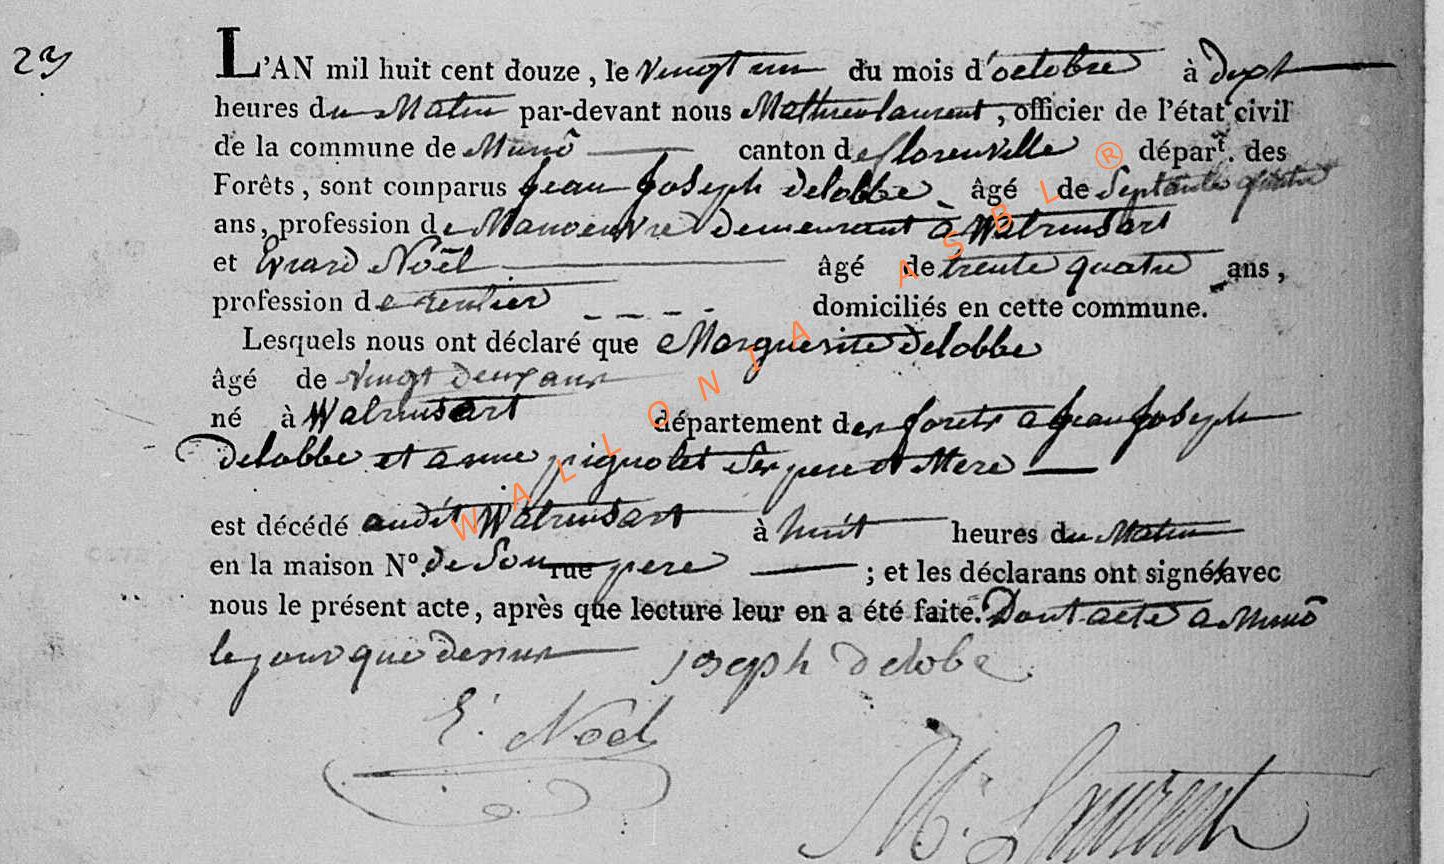 23
L'AN mil huit cent douze, le vingt un du mois d'octobre à
heures du Matin par-devant nous Mathieu laurent, officier de l'état civil
de la commune de Munô canton de florenville départ. des
Forêts, sont comparus jean joseph delobbe âgé de Septante quatre
ans, profession de Manoeuvre demeurant à Watrinsart
et Evrard Noël âgé de trente quatre ans,
profession de rentier domiciliés en cette commune.
Lesquels nous ont déclaré que Marguerite delobbe
âgé de vingt deux ans
né à Watrinsart département des forets a jean joseph
delobbe et anne pignolet Ses pere et Mere
est décédé audit Watrinsart à huit heures du Matin
en la maison N°. de Son rue pere ; et les déclarans ont signé avec
nous le présent acte, après que lecture leur en a été faite. Dont acte a Munô
le jour que dessus joseph delobe
E. Noël
M. Laurent
WALLONIA ASBL ®